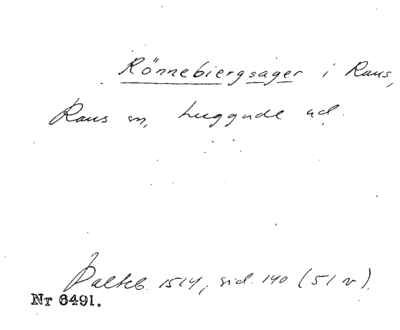 Rönnebiergsager i Raus,
Raus sn, Luggude hd.
Palteb. 1514, sid. 140 (51 v).
Nr 6491.